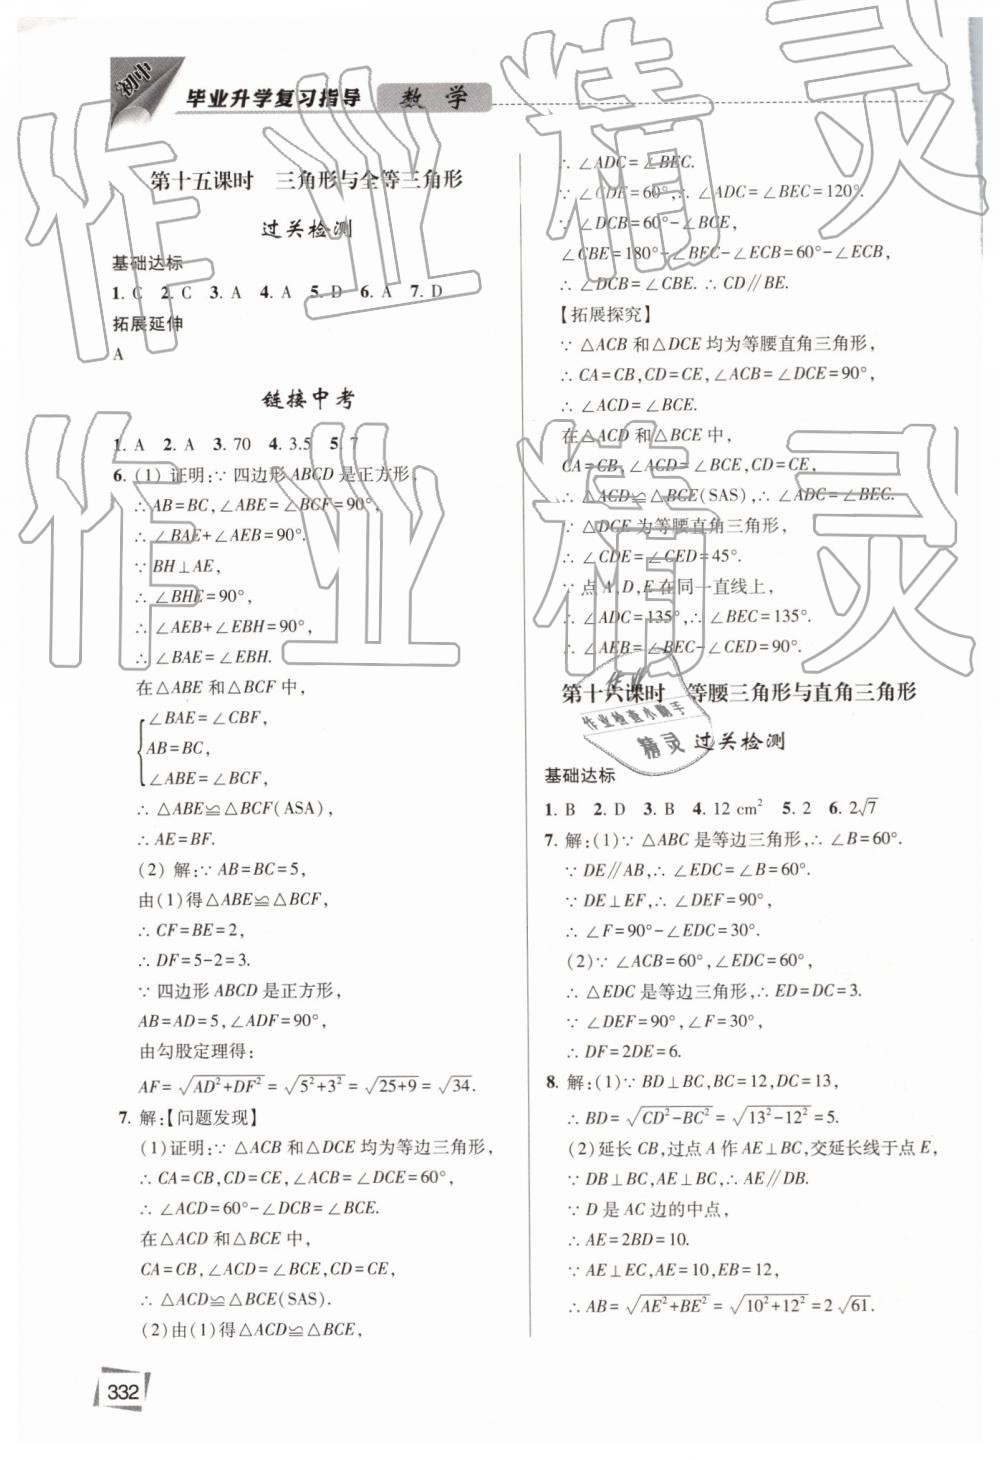 初中
毕业升学复习指导 数 学
第十五课时 三角形与全等三角形
过关检测
基础达标
1. C 2. C 3. A 4. A 5. D 6. A 7. D
拓展延伸
A
链接中考
1. A 2. A 3. 70 4. 3.5 5. 7
6. (1) 证明:∵ 四边形 ABCD 是正方形,
∴ AB=BC,∠ABE=∠BCF=90°,
∴ ∠BAE+∠AEB=90°.
∵ BH⊥AE,
∴ ∠BHE=90°,
∴ ∠AEB+∠EBH=90°,
∴ ∠BAE=∠EBH.
在△ABE 和△BCF 中,
∠BAE=∠CBF,
AB=BC,
∠ABE=∠BCF,
∴ △ABE≌△BCF(ASA),
∴ AE=BF.
(2) 解:∵ AB=BC=5,
由(1)得△ABE≌△BCF,
∴ CF=BE=2,
∴ DF=5-2=3.
∵ 四边形 ABCD 是正方形,
AB=AD=5,∠ADF=90°,
由勾股定理得:
AF=√(AD²+DF²)=√(5²+3²)=√(25+9)=√34.
7. 解:【问题发现】
(1)证明:∵ △ACB 和△DCE 均为等边三角形,
∴ CA=CB,CD=CE,∠ACB=∠DCE=60°,
∴ ∠ACD=60°-∠DCB=∠BCE.
在△ACD 和△BCE 中,
CA=CB,∠ACD=∠BCE,CD=CE,
∴ △ACD≌△BCE(SAS).
(2)由(1)得△ACD≌△BCE,
332
∴ ∠ADC=∠BEC.
∵ ∠CDE=60°,∴ ∠ADC=∠BEC=120°.
∵ ∠DCB=60°-∠BCE,
∠CBE=180°-∠BEC-∠ECB=60°-∠ECB,
∴ ∠DCB=∠CBE. ∴ CD∥BE.
【拓展探究】
∵ △ACB 和△DCE 均为等腰直角三角形,
∴ CA=CB,CD=CE,∠ACB=∠DCE=90°,
∴ ∠ACD=∠BCE.
在△ACD 和△BCE 中,
CA=CB,∠ACD=∠BCE,CD=CE,
∴ △ACD≌△BCE(SAS),∴ ∠ADC=∠BEC.
∵ △DCE 为等腰直角三角形,
∴ ∠CDE=∠CED=45°.
∵ 点 A,D,E 在同一直线上,
∴ ∠ADC=135°,∴ ∠BEC=135°.
∴ ∠AEB=∠BEC-∠CED=90°.
第十六课时 等腰三角形与直角三角形
过关检测
基础达标
1. B 2. D 3. B 4. 12 cm² 5. 2 6. 2√7
7. 解:(1)∵ △ABC 是等边三角形,∴ ∠B=60°.
∵ DE∥AB,∴ ∠EDC=∠B=60°.
∵ DE⊥EF,∴ ∠DEF=90°,
∴ ∠F=90°-∠EDC=30°.
(2)∵ ∠ACB=60°,∠EDC=60°,
∴ △EDC 是等边三角形,∴ ED=DC=3.
∵ ∠DEF=90°,∠F=30°,
∴ DF=2DE=6.
8. 解:(1)∵ BD⊥BC,BC=12,DC=13,
∴ BD=√(CD²-BC²)=√(13²-12²)=5.
(2)延长 CB,过点 A 作 AE⊥BC,交延长线于点 E,
∵ DB⊥BC,AE⊥BC,∴ AE∥DB.
∵ D 是 AC 边的中点,
∴ AE=2BD=10.
∵ AE⊥EC,AE=10,EB=12,
∴ AB=√(AE²+BE²)=√(10²+12²)=2√61.
作业精灵
作业精灵
作业
作业检查小助手
精灵